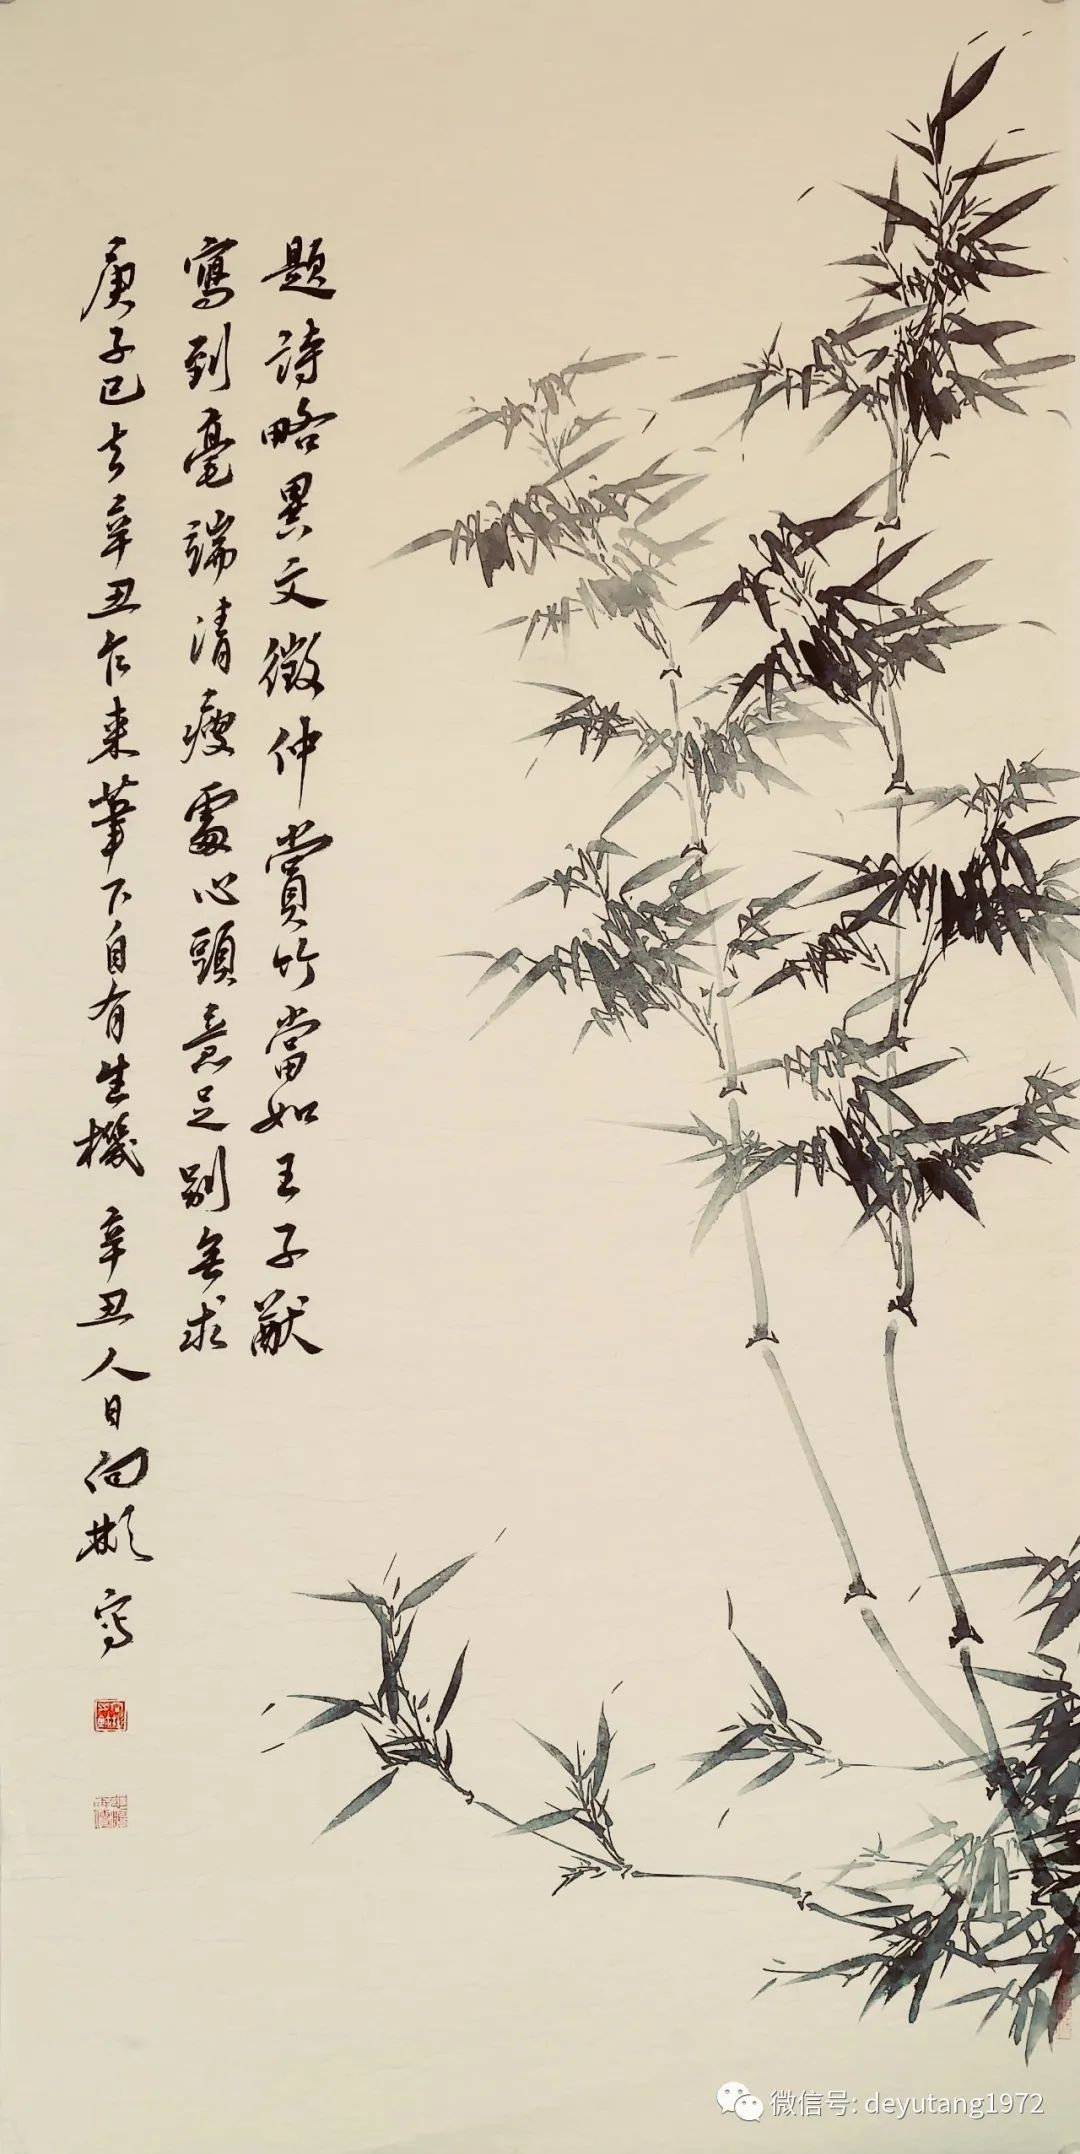 題詩略異文徵仲賞竹當如王子猷
寫到毫端清瘦處心頭意足別無求
庚子已去辛丑乍来筆下自有生機辛丑人日向彬寫
微信号: deyutang1972